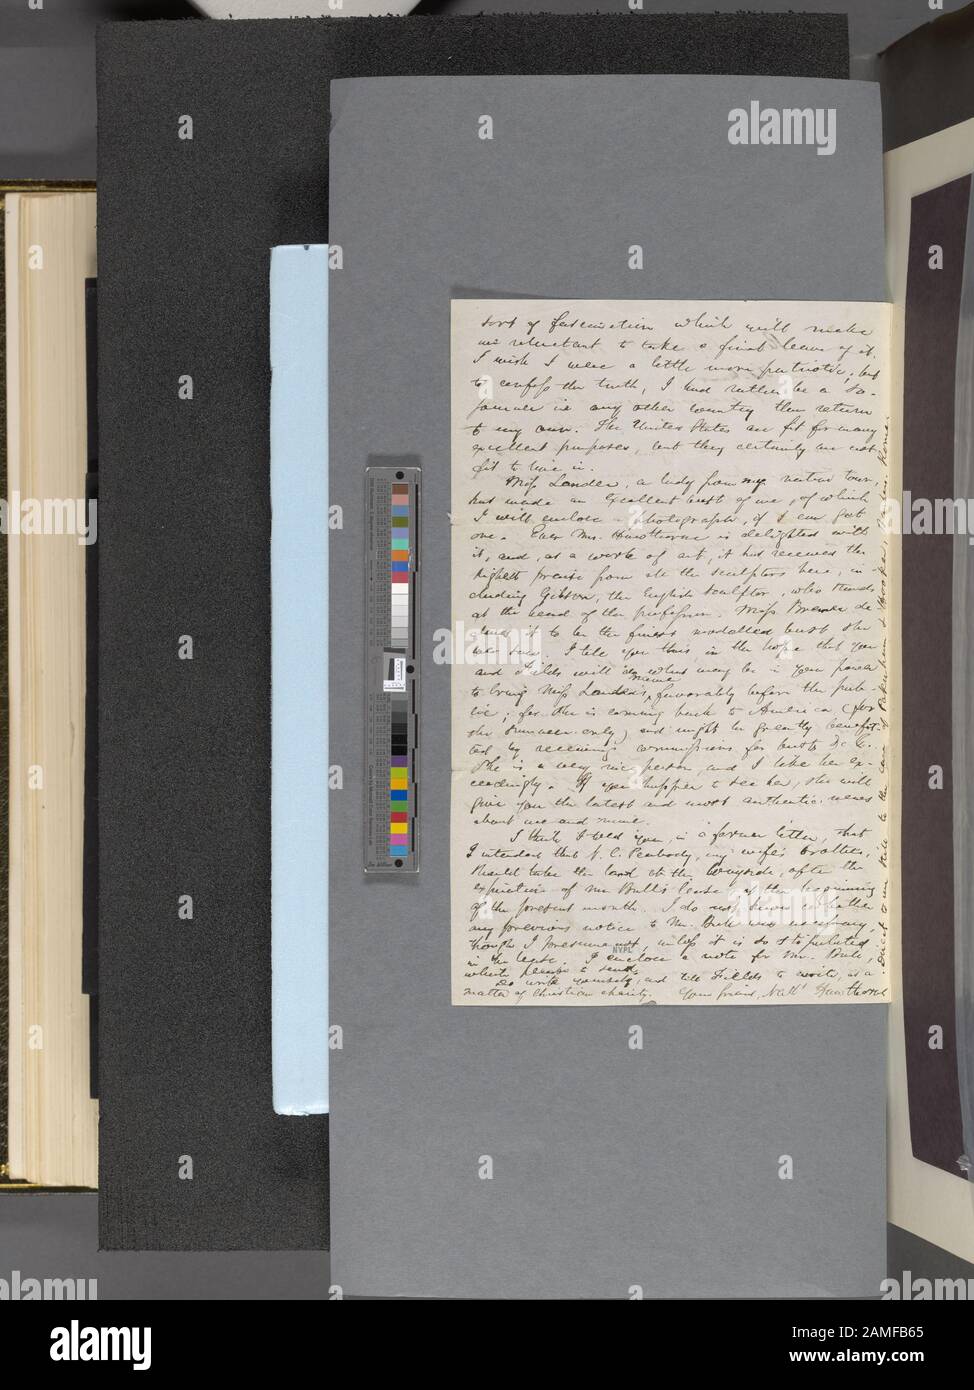 sort of fascination which will make
me reluctant to take a final leave of it.
I wish I were a little more patriotic; but
to confess the truth, I had rather be a so-
journer in any other country than return
to my own. The United States are fit for many
excellent purposes, but they certainly are not
fit to live in.
Miss Lander, a lady from my native town,
has made an excellent bust of me, of which
I will enclose a photograph, if I can get
one. Even Mrs. Hawthorne is delighted with
it, and, as a work of art, it has received the
highest praise from all the sculptors here, in-
cluding Gibson, the English sculptor, who stands
at the head of the profession. Miss Bremer de-
clares it to be the finest modelled bust she
ever saw. I tell you this in the hope that you
and Fields will do what may be in your power
to bring Miss Lander's name favorably before the pub-
lic; for she is coming back to America (for
the summer only) and might be greatly benefit-
ted by receiving commissions for busts &c &c.
She is a very nice person, and I like her ex-
ceedingly. If you happen to see her, she will
give you the latest and most authentic news
about me and mine.
I think I told you, in a former letter, that
I intended that N. C. Peabody, my wife's brother,
should take the land at the Wayside, after the
expiration of Mr Bull's lease at the beginning
of the present month. I do not know whether
any previous notice to Mr. Bull was necessary,
though I presume not, unless it is so stipulated
in the lease. I enclose a note for Mr. Bull,
which please to send.
Do write yourself, and tell Fields to write, as a
matter of Christian charity. Your friend, Nathl Hawthorne
Direct to me still to the care of Pakenham & Hooker, Rome.
NYPL
alamy
alamy
alamy
Image ID: 2AMFB65
www.alamy.com